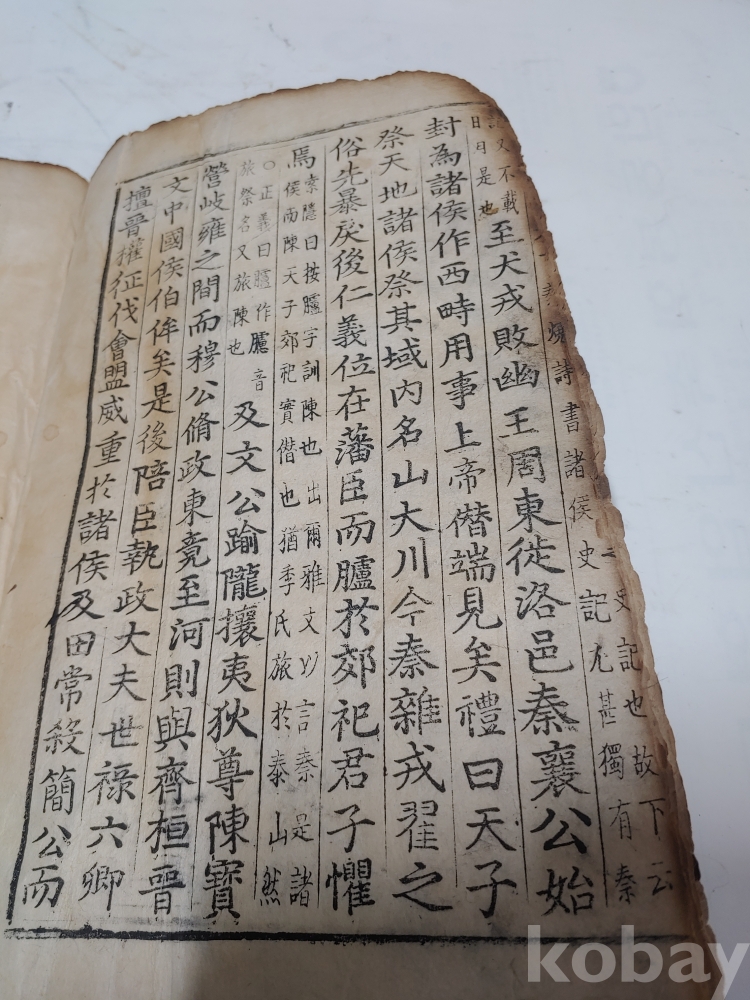 史記也故下云
燒詩書諸侯史記尤甚獨有秦
記又不載
日月是也
至犬戎敗幽王周東徙洛邑秦襄公始
封為諸侯作西畤用事上帝僭端見矣禮曰天子
祭天地諸侯祭其域内名山大川今秦雜戎翟之
俗先暴戾後仁義位在藩臣而臚於郊祀君子懼
焉
索隱曰按臚字訓陳也出爾雅文以言秦是諸
侯而陳天子郊祀實僭也猶季氏旅於泰山然
○正義曰臚作臚音
旅祭名又旅陳也
及文公踰隴攘夷狄尊陳寶
營岐雍之間而穆公脩政東竟至河則與齊桓晉
文中國侯伯侔矣是後陪臣執政大夫世祿六卿
擅晉權征伐會盟威重於諸侯及田常殺簡公而
kobay